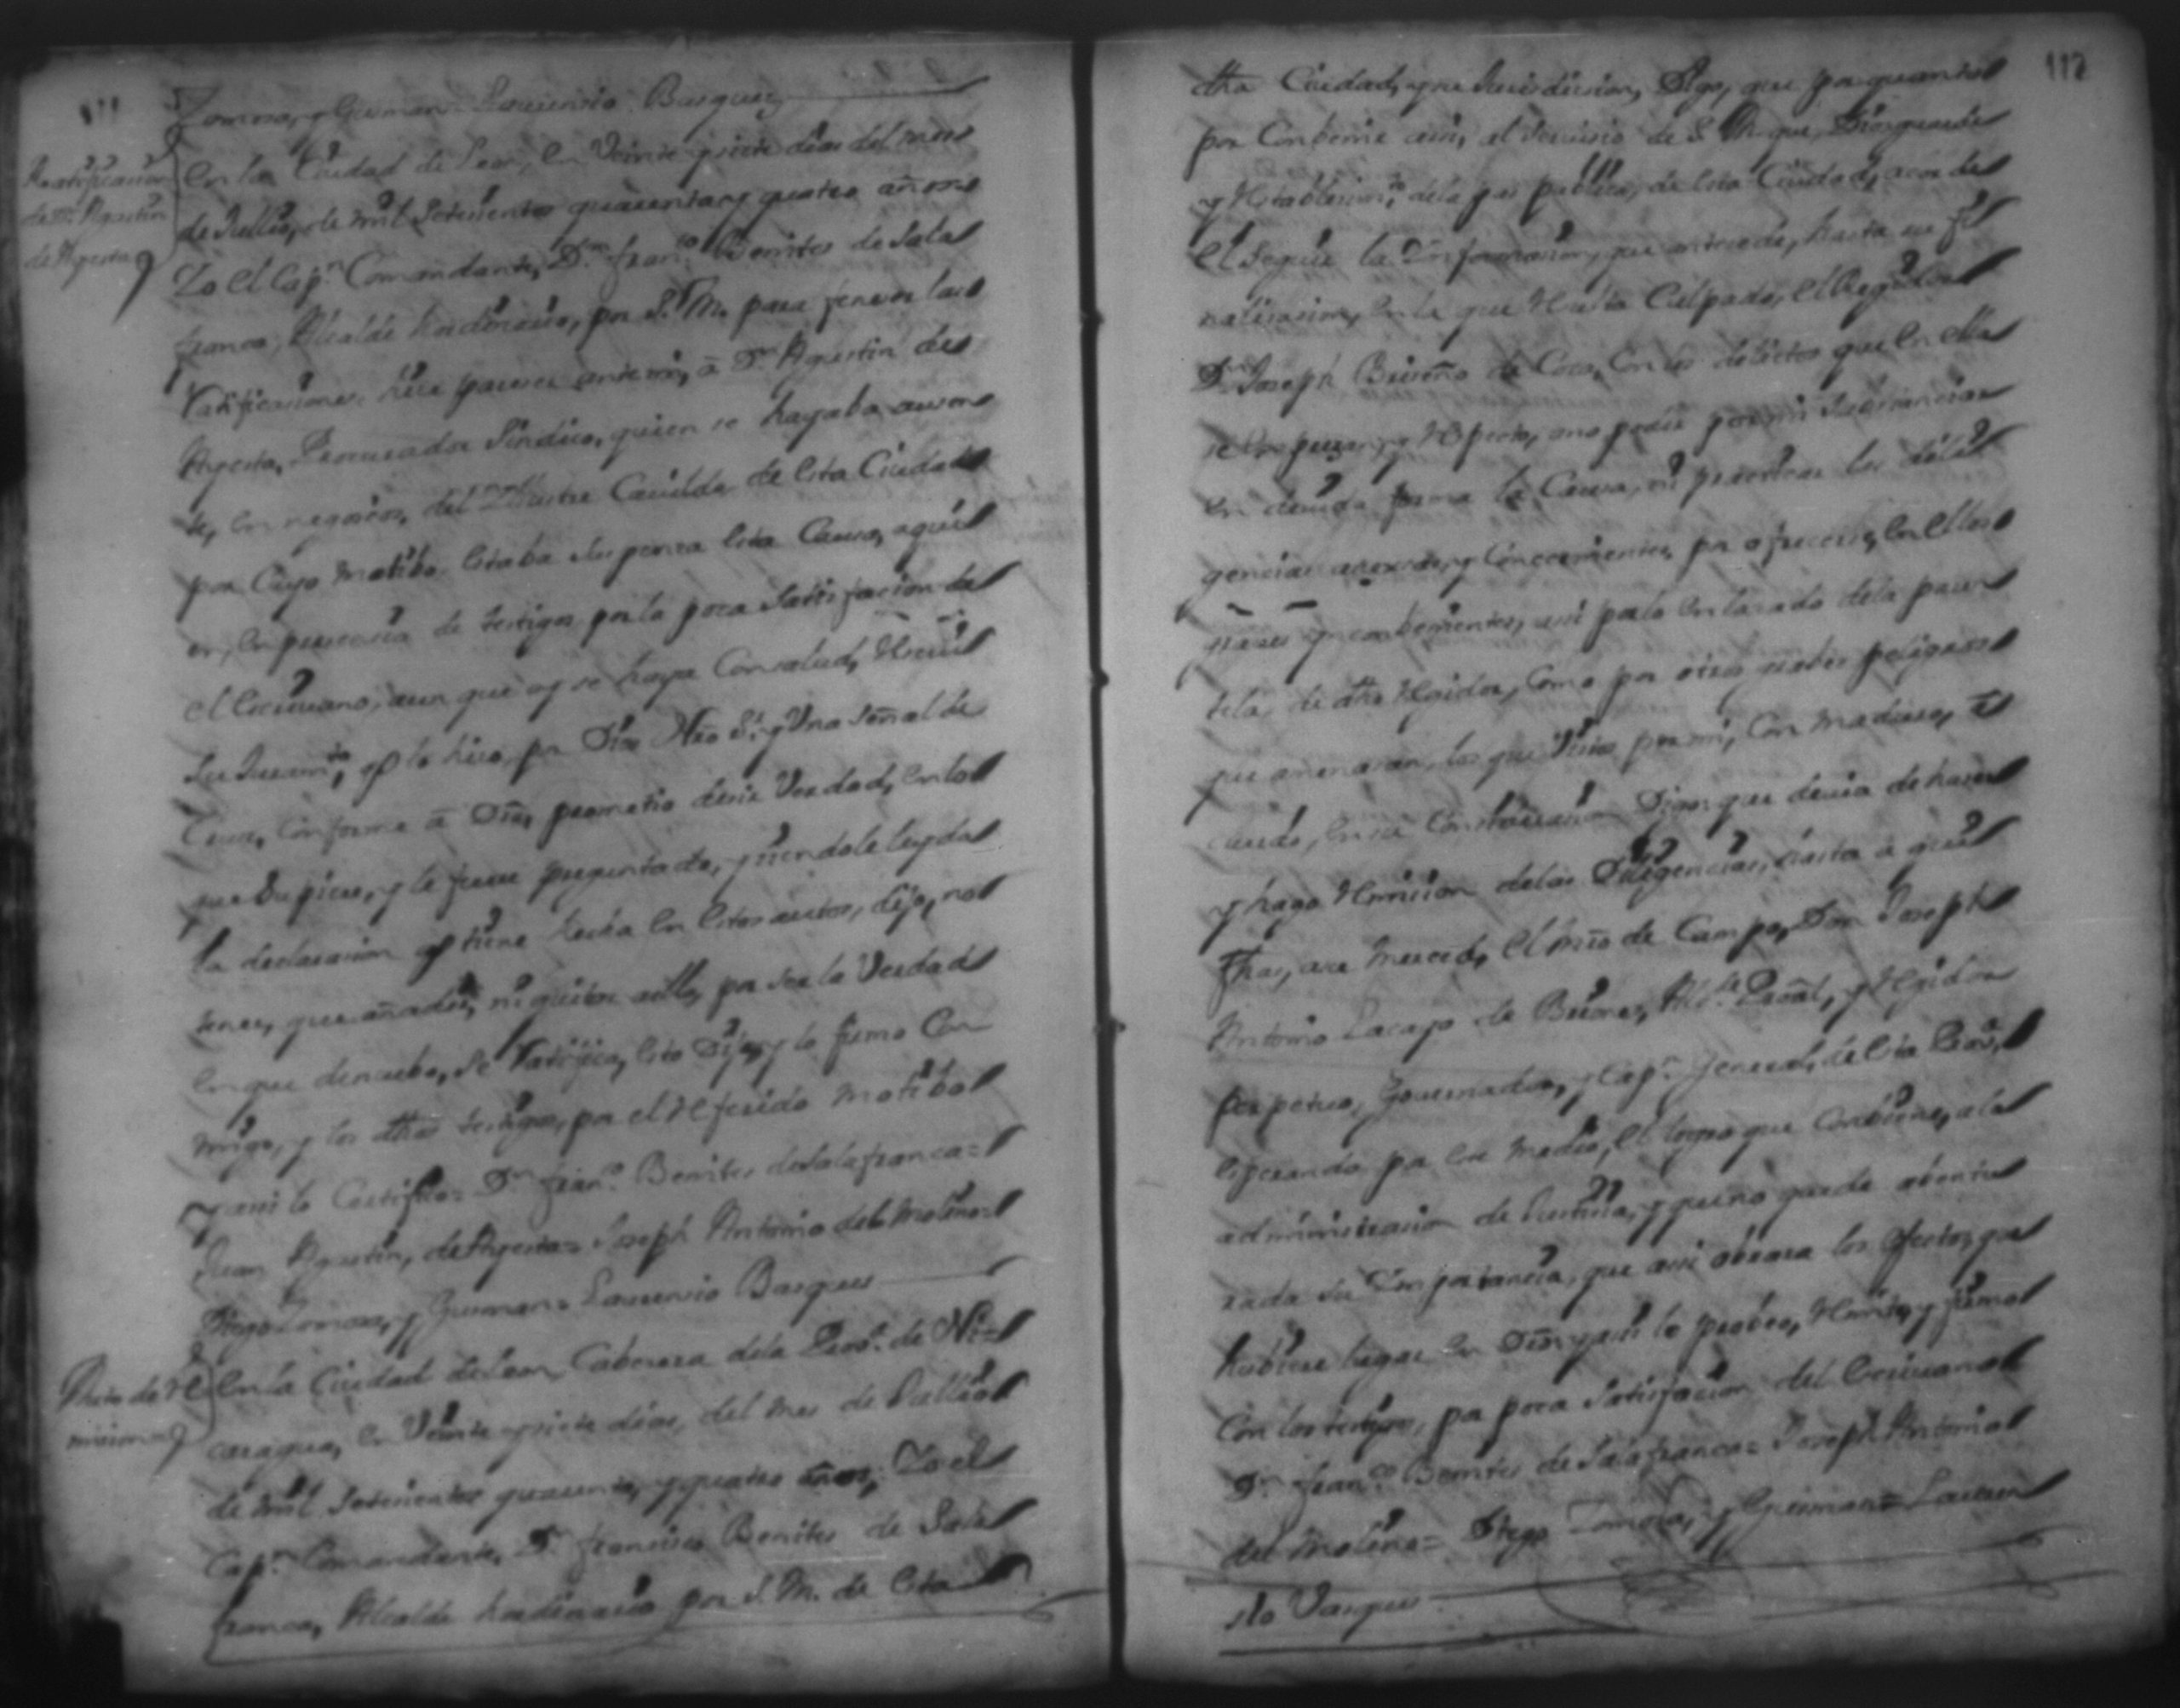 111
Zomosa, y Gusman = Laurensio Basques
Ratificacion
de Dn Agustin
de Agesta
En la Ciudad de Leon, en Veinte y siete dias del mes
de Jullio, de mil setesientos quarenta y quatro años
Yo el Capn Comandante, Dn franco Benites de Sala
franca, Alcalde hordinario, por S. M. para feneser las
Ratificaciones, hise pareser ante mi, a Dn Agustin de
Agesta, Procurador Sindico, quien se hayaba ausen
te, en negosios, del Illustre Cavildo de esta Ciudad
por Cuyo motibo estaba suspensa esta Causa, a quie
en, en presencia de testigos por la poca Satisfacion de
el Escrivano, aun que oy se haya Con salud, Resivi
su Juramto, q lo hiso, por Dios Nro Sr y Una señal de
Crus, Conforme a Dro, prometio desir Verdad, en lo
que supiere, y le fuere preguntado, y siendole leyda
la declarasion q tiene hecha en estos autos, dijo, no
tener, que añadir, ni quitar a ella, por ser la Verdad
en que de nuebo, se Ratifica, esto Dijo, y lo firmo Con
migo, y los dhos testigos, por el Referido motibo
y assi lo Certifico = Dn franco Benites de Salafranca =
Juan Agustin, de Agesta = Joseph Antonio del Molino =
Diego Zomosa, y Gusman = Laurensio Basques
Auto de Re
mision
En la Ciudad de Leon Cabesera de la Prova de Ni=
caragua, en Veinte y siete dias, del mes de Jullio
de mil setesientos quarenta, y quatro años, Yo el
Capn Comandante, Dn francisco Benites de Sala
franca, Alcalde hordinario por S. M. de esta
112
dha Ciudad, y su Jurisdision, Digo, que por quanto
por Conbenir assi, al servisio de S. M. que Dios guarde
y Establesimto de la pas publica, de esta Ciudad, acorde
el seguir la Informasion, que antesede, hasta su fi
nalisasion, en la que Resulta Culpado, el Regidor
Dn Joseph Briseño de Coca, Con los delictos que en ella
se Expresan, y Respecto, a no poder por mi substanciar
en devida forma la Causa, ni practicar las dili
gencias anexas, y Consernientes, por ofreserse, en ellas
graves ynconbenientes, assi por lo enlasado de la paren
tela, de dho Regidor, Como por otros graves peligros
que amenasan, los que Vistos por mi, Con maduro, a
cuerdo, en su Considerasion Digo: que devia de haser
y hago Remision de las Diligencias, hasta a qui
fhas, a su Merced, el Mro de Campo, Don Joseph
Antonio Lacayo de Briones, Alcde Provl, y Regidor
perpetuo, Governador, y Capn General, de esta Prova,
esperando por este medio, el logro que Conbiene, a la
administrasion de Justicia, y que no quede abentu
rada su Importancia, que assi obrara los efectos que
hubiere lugar en Dro, y assi lo probeo, Remito, y firmo
Con los testigos, por poca Satisfacion del Escrivano
Dn franco Benites de Salafranca = Joseph Antonio
del Molino = Diego Zomosa, y Gusman = Lauren
sio Vasques